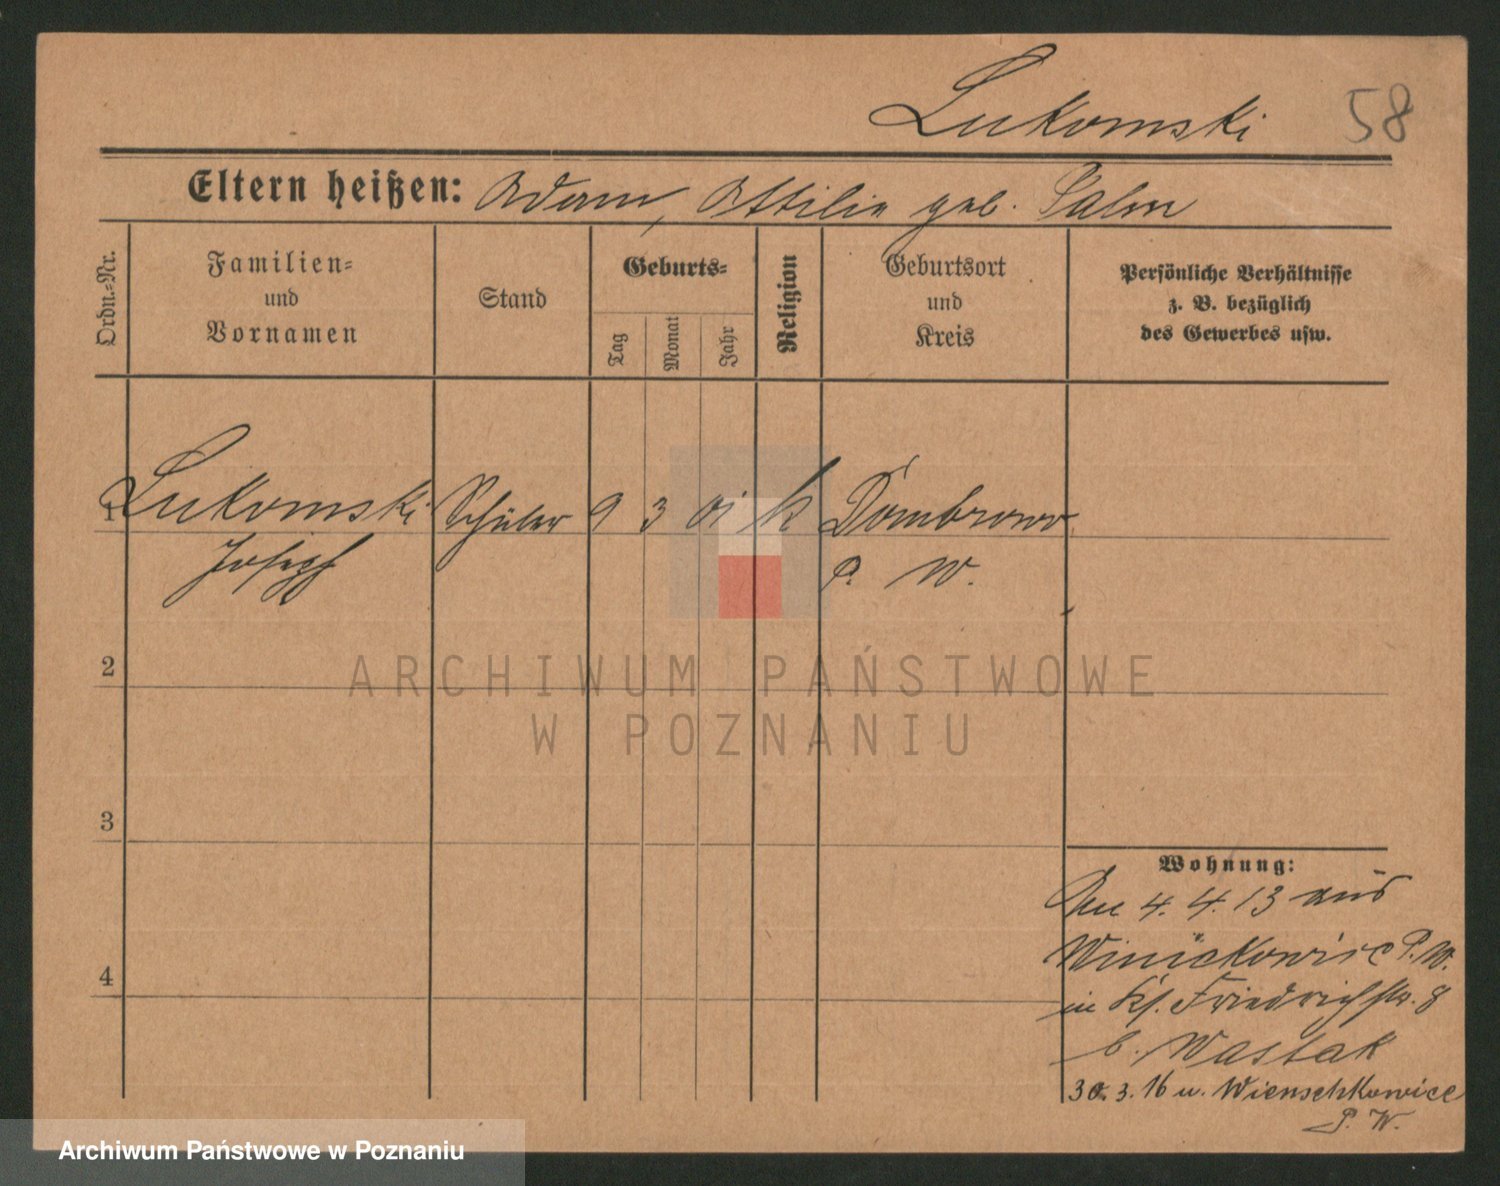 Lukomski 58
Eltern heißen: Adam, Ottilie geb. Palm
Ordn.-Nr.
Familien- und Vornamen
Stand
Geburts-
Tag
Monat
Jahr
Religion
Geburtsort und Kreis
Persönliche Verhältnisse z. B. bezüglich des Gewerbes usw.
1 Lukomski Schüler 9 3 01 k Dombrowo
Joseph P. W.
2
ARCHIWUM PAŃSTWOWE
W POZNANIU
3
Wohnung:
Am 4. 4. 13 aus
4 P. W.
in Friedrichstr. 8
b. Wastak
3. 16 n. Wienschkowice
P. W.
Archiwum Państwowe w Poznaniu